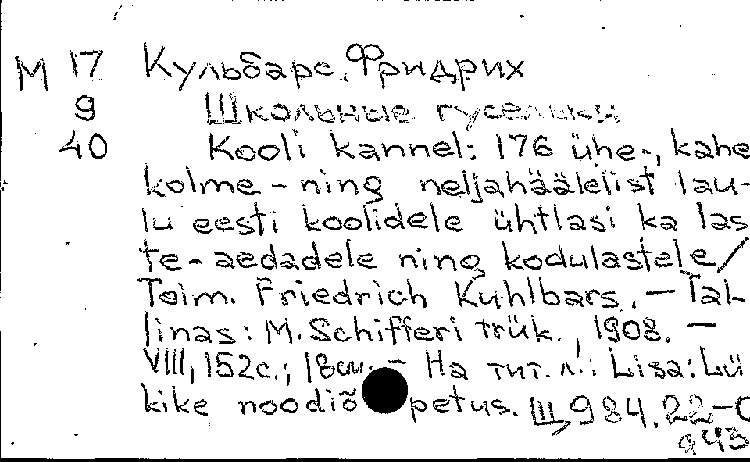 М 17 Кульбарс, Фридрих
9 Школьные гусельки
40 Kooli kannel: 176 ühe-, kahe
kolme - ning neljahäälelist lau-
lu eesti koolidele ühtlasi ka las
te-aedadele ning kodulastele/
Toim. Friedrich Kuhlbars. — Tal-
linas: M. Schifferi trük., 1908. —
VIII, 152с.; 18см. — На тит. л.: Lisa: Lü
kike noodiõpetus. Щ984.22-
943